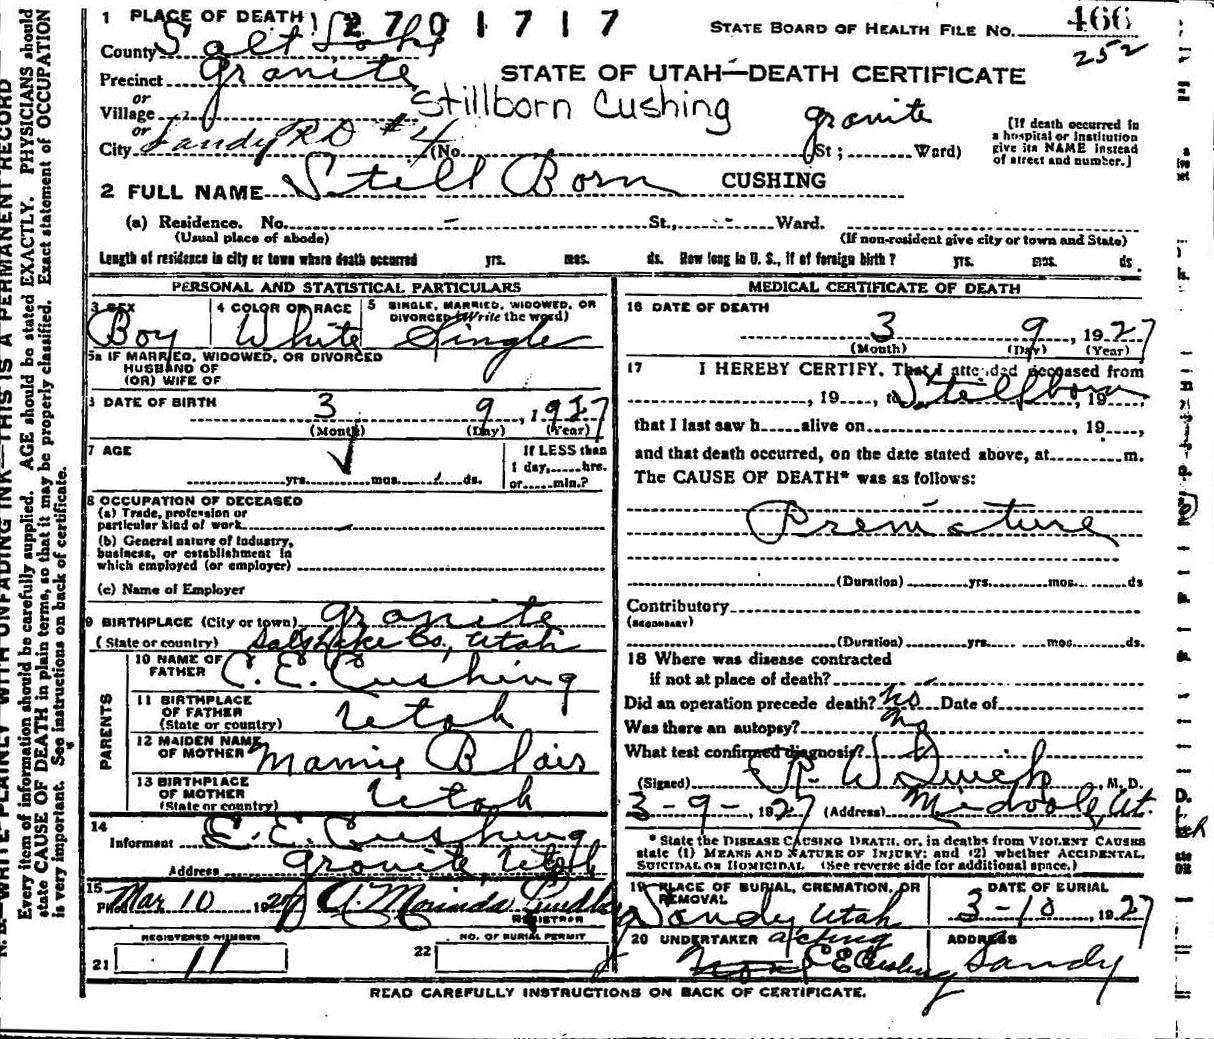 1 PLACE OF DEATH 2701717 STATE BOARD OF HEALTH FILE NO. 466
County Salt Lake 252
Precinct Granite STATE OF UTAH—DEATH CERTIFICATE
or Stillborn Cushing
Village Granite
or
City Sandy RD #4 (No. St; Ward)
[If death occurred in
a hospital or institution
give its NAME instead
of street and number.]
2 FULL NAME Still Born CUSHING
(a) Residence. No. - St., -- Ward.
(Usual place of abode) (If non-resident give city or town and State)
Length of residence in city or town where death occurred yrs. mos. ds. How long in U. S., if of foreign birth? yrs. mos. ds.
PERSONAL AND STATISTICAL PARTICULARS
3 SEX 4 COLOR OR RACE 5 SINGLE, MARRIED, WIDOWED, OR
DIVORCED (Write the word)
Boy White Single
5a IF MARRIED, WIDOWED, OR DIVORCED
HUSBAND OF
(OR) WIFE OF
DATE OF BIRTH
3 9, 1927
(Month) (Day) (Year)
7 AGE If LESS than
1 day, hrs.
yrs. mos. ds. or min.?
8 OCCUPATION OF DECEASED
(a) Trade, profession or
particular kind of work
(b) General nature of industry,
business, or establishment in
which employed (or employer)
(c) Name of Employer
9 BIRTHPLACE (City or town) Granite
(State or country) Salt Lake Co., Utah
PARENTS
10 NAME OF
FATHER C. E. Cushing
11 BIRTHPLACE
OF FATHER
(State or country) Utah
12 MAIDEN NAME
OF MOTHER Mamie Blair
13 BIRTHPLACE
OF MOTHER
(State or country) Utah
14
Informant C. E. Cushing
Address Granite, Utah
15
Filed Mar 10 1927 A. Marinda
REGISTRAR
REGISTERED NUMBER NO. OF BURIAL PERMIT
21 11 22
MEDICAL CERTIFICATE OF DEATH
16 DATE OF DEATH
3 9, 1927
(Month) (Day) (Year)
17 I HEREBY CERTIFY, That I attended deceased from
, 19, to Stillborn, 19
that I last saw h alive on , 19,
and that death occurred, on the date stated above, at m.
The CAUSE OF DEATH* was as follows:
Premature
(Duration) yrs. mos. ds
Contributory
(SECONDARY)
(Duration) yrs. mos. ds.
18 Where was disease contracted
if not at place of death?
Did an operation precede death? no Date of
Was there an autopsy? no
What test confirmed diagnosis?
(Signed) M. D.
3-9-, 1927 (Address) Midvale, Ut.
* State the DISEASE CAUSING DEATH, or, in deaths from VIOLENT CAUSES
state (1) MEANS AND NATURE OF INJURY; and (2) whether ACCIDENTAL,
SUICIDAL or HOMICIDAL. (See reverse side for additional space.)
19 PLACE OF BURIAL, CREMATION, OR
REMOVAL
Sandy Utah
DATE OF BURIAL
3-10, 1927
20 UNDERTAKER acting
C E Cushing
ADDRESS
Sandy
READ CAREFULLY INSTRUCTIONS ON BACK OF CERTIFICATE.
N. B. WRITE PLAINLY WITH UNFADING INK—THIS IS A PERMANENT RECORD
Every item of information should be carefully supplied. AGE should be stated EXACTLY. PHYSICIANS should
state CAUSE OF DEATH in plain terms, so that it may be properly classified. Exact statement of OCCUPATION
is very important. See instructions on back of certificate.